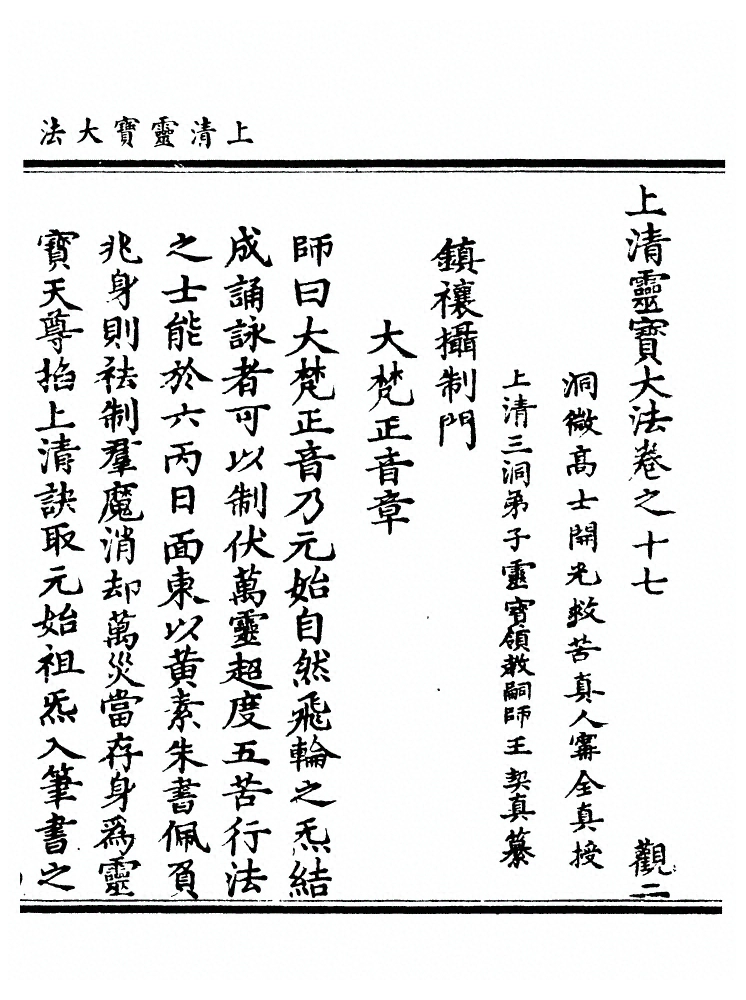 上清靈寶大法
上清靈寶大法卷之十七 觀二
洞微高士開光救苦真人甯全真授
上清三洞弟子靈寶領教嗣師王契真纂
鎮禳攝制門
大梵正音章
師曰大梵正音乃元始自然飛輪之炁結
成誦詠者可以制伏萬靈超度五苦行法
之士能於六丙日面東以黃素朱書佩負
兆身則袪制羣魔消却萬災當存身為靈
寶天尊掐上清訣取元始祖炁入筆書之